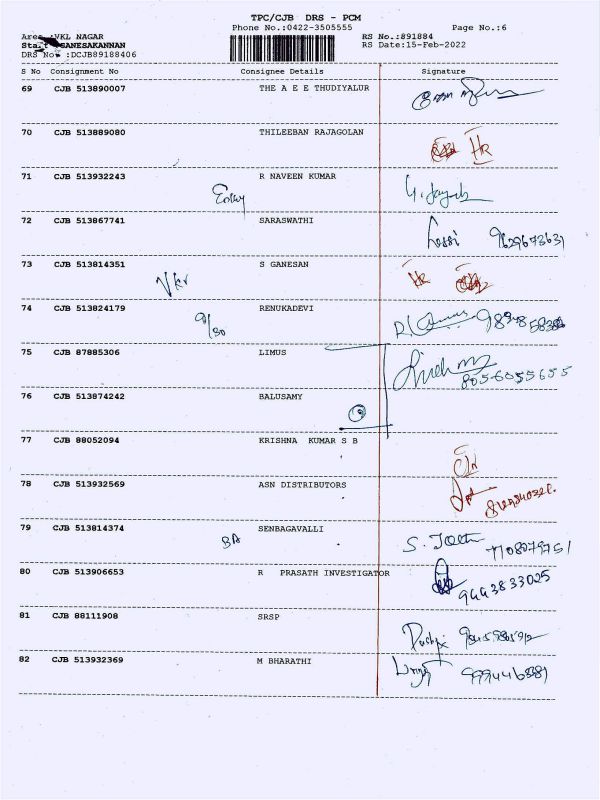 TPC/CJB DRS - PCM
Phone No.:0422-3505555 Page No.:6
Area :VKL NAGAR RS No.:891884
Staff :GANESAKANNAN RS Date:15-Feb-2022
DRS No :DCJB89188406
S No Consignment No Consignee Details Signature
69 CJB 513890007 THE A E E THUDIYALUR
70 CJB 513889080 THILEEBAN RAJAGOLAN
HR
71 CJB 513932243 R NAVEEN KUMAR
72 CJB 513867741 SARASWATHI
9629673631
73 CJB 513814351 S GANESAN
HR
74 CJB 513824179 RENUKADEVI
75 CJB 87885306 LIMUS
8056055655
76 CJB 513874242 BALUSAMY
77 CJB 88052094 KRISHNA KUMAR S B
78 CJB 513932569 ASN DISTRIBUTORS
79 CJB 513814374 SENBAGAVALLI
BA
80 CJB 513906653 R PRASATH INVESTIGATOR
9443833025
81 CJB 88111908 SRSP
82 CJB 513932369 M BHARATHI